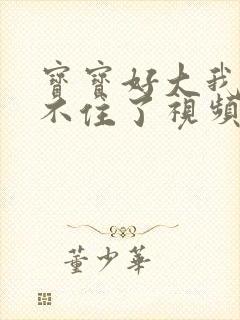 寳寳好大我
不住了視頻
董少華